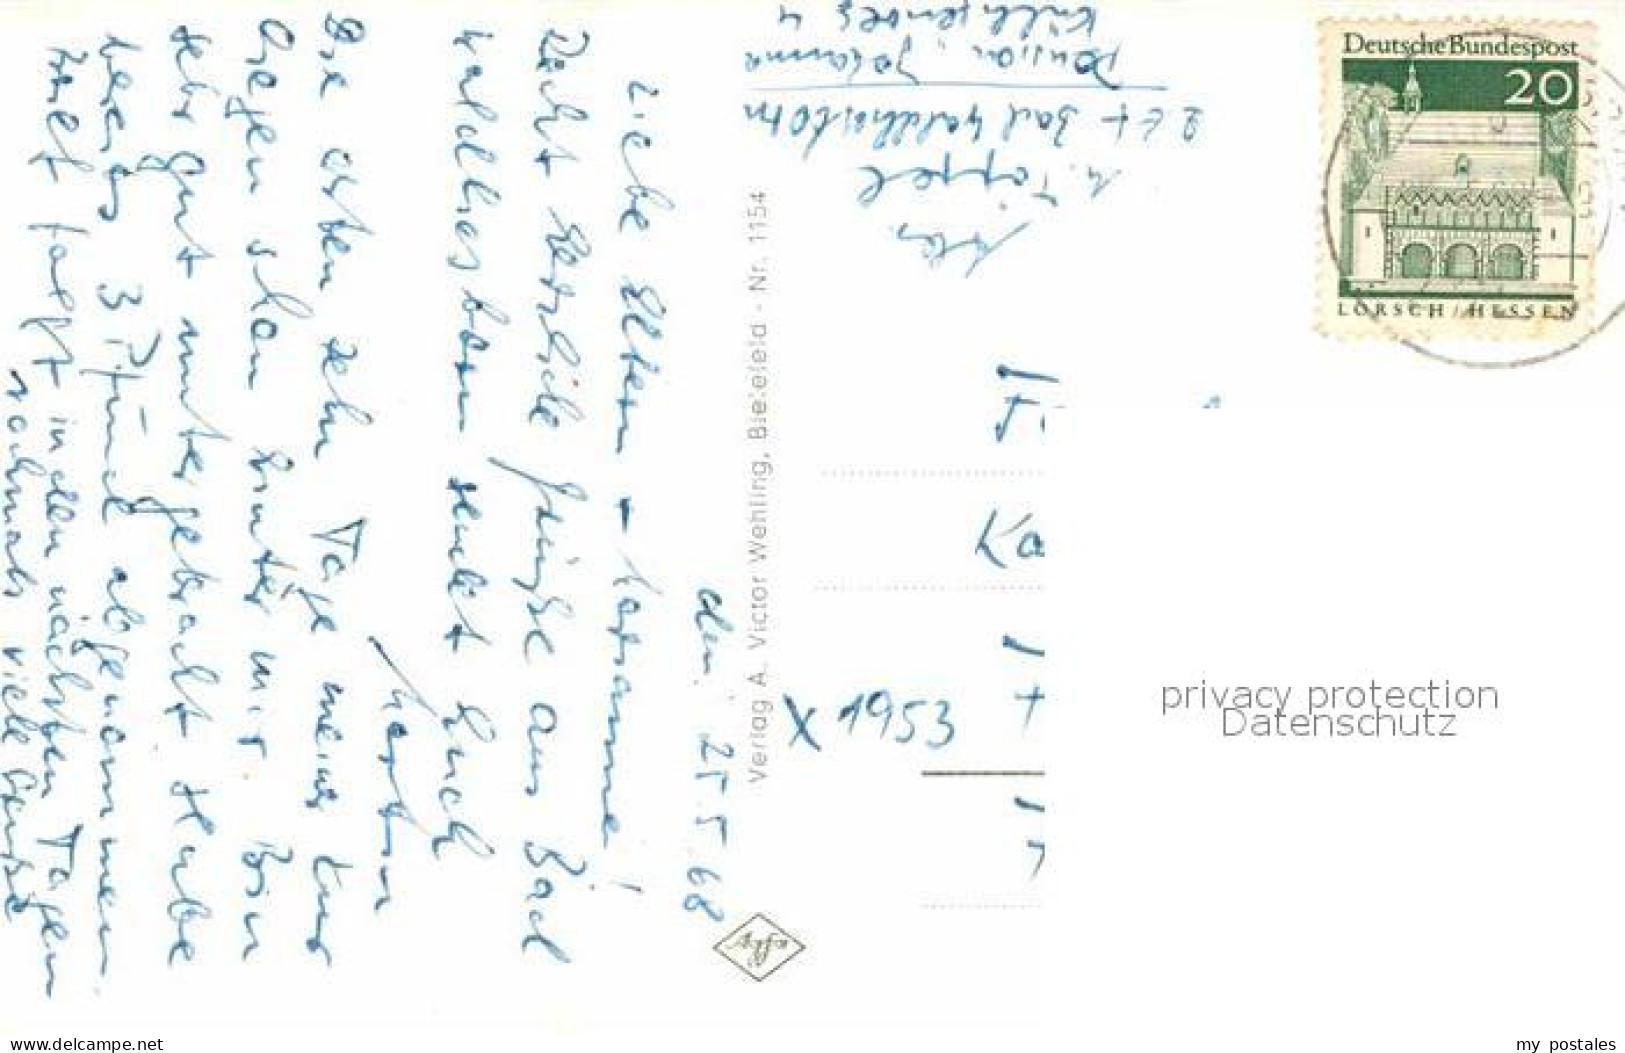 den 25.5.68
Liebe Eltern + Marianne!
Recht herzliche Grüße aus Bad
Waldliesborn sendet Euch
Martin
Die ersten zehn Tage meiner Kur
liegen schon hinter mir. Bin
sehr gut untergebracht. Habe
bereits 3 Pfund abgenommen.
Brief folgt in den nächsten Tagen
nochmals viele Grüße
Verlag A. Victor Wehling, Bielefeld - Nr. 1154
Abs.
M. Töpfel
Bad Waldliesborn
Pension Johanna
4
Deutsche Bundespost
20
LORSCH / HESSEN
Ka
x 1953
privacy protection
Datenschutz
www.delcampe.net
my_postales